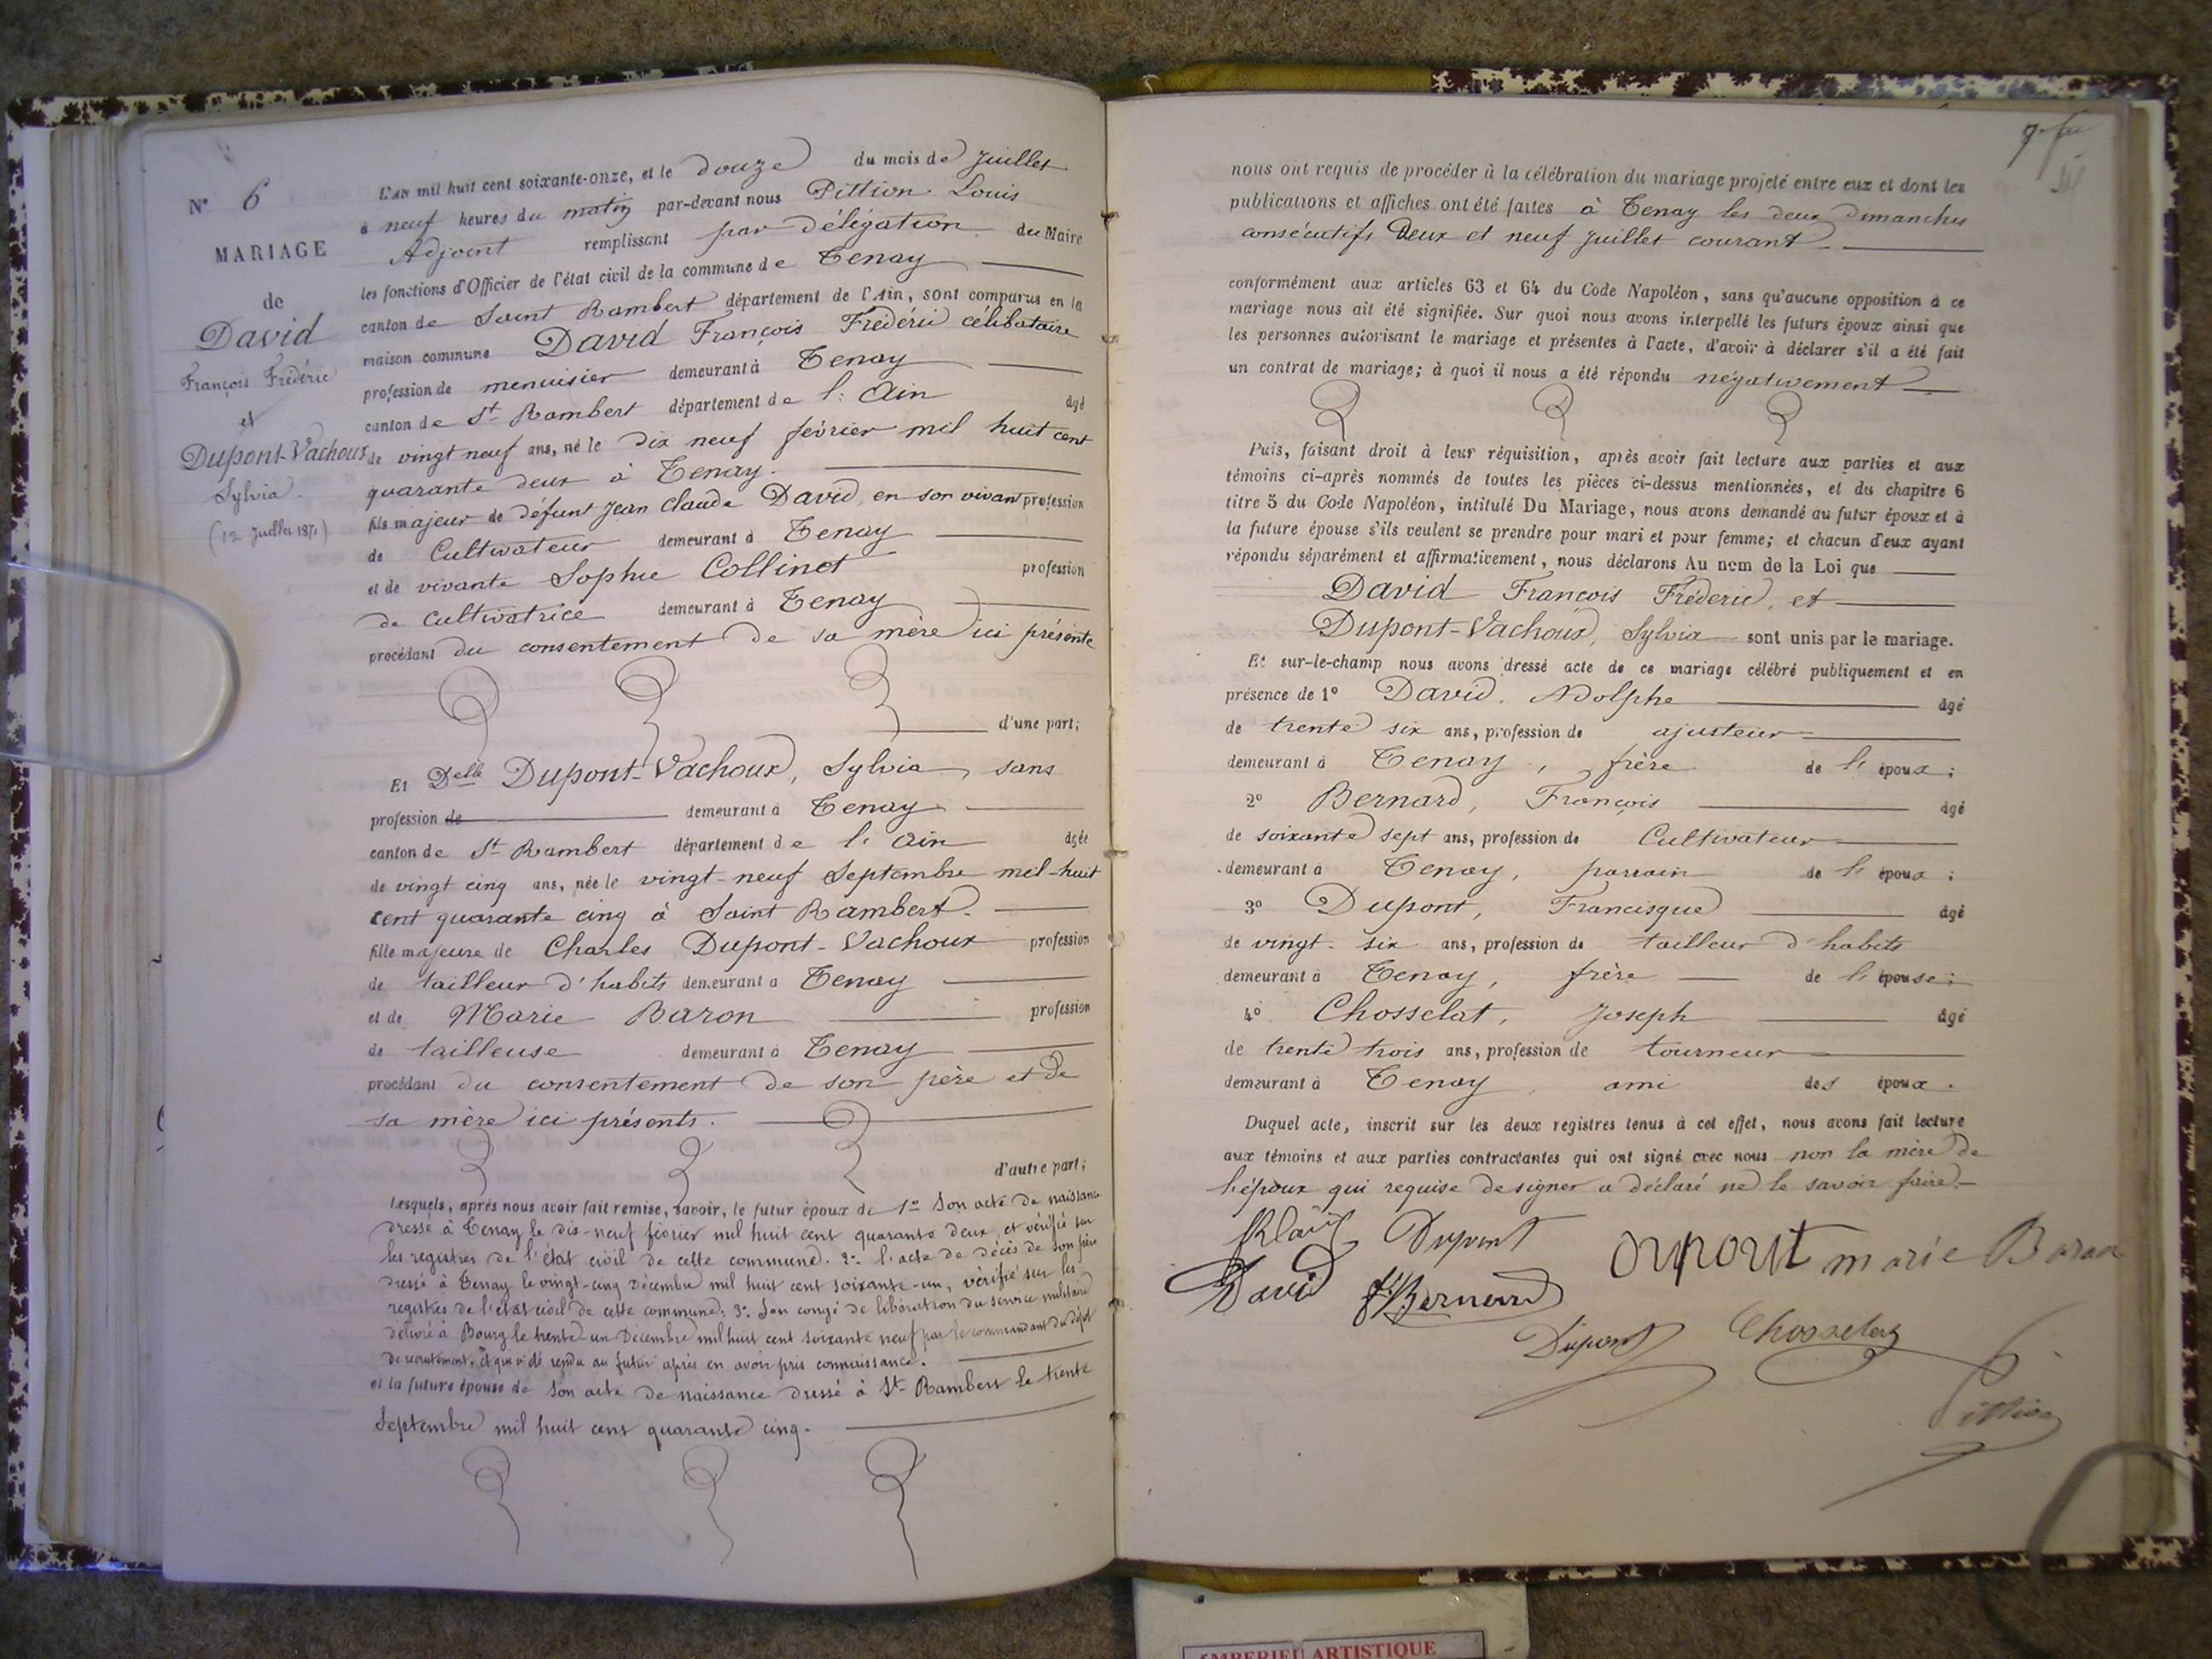 N° 6
MARIAGE
de
David
François Frédéric
et
Dupont-Vachoux
Sylvia
(12 Juillet 1871)
L'an mil huit cent soixante-onze, et le douze du mois de Juillet
à neuf heures du matin par-devant nous Pittion Louis
Adjoint remplissant par délégation du Maire
les fonctions d'Officier de l'état civil de la commune de Tenay
canton de Saint Rambert département de l'Ain, sont comparus en la
maison commune David François Frédéric célibataire
profession de menuisier demeurant à Tenay
canton de St Rambert département de l'Ain âgé
de vingt neuf ans, né le dix neuf février mil huit cent
quarante deux à Tenay.
fils majeur de défunt Jean Claude David, en son vivant profession
de Cultivateur demeurant à Tenay
et de vivante Sophie Collinot profession
de cultivatrice demeurant à Tenay
procédant du consentement de sa mère ici présente
d'une part;
Et Delle Dupont-Vachoux, Sylvia, sans
profession de demeurant à Tenay
canton de St Rambert département de l'Ain âgée
de vingt cinq ans, née le vingt-neuf Septembre mil-huit
cent quarante cinq à Saint Rambert.
fille majeure de Charles Dupont-Vachoux profession
de tailleur d'habits demeurant à Tenay
et de Marie Baron profession
de tailleuse demeurant à Tenay
procédant du consentement de son père et de
sa mère ici présents.
d'autre part;
Lesquels, après nous avoir fait remise, savoir, le futur époux de 1° Son acte de naissance
dressé à Tenay le dix-neuf février mil huit cent quarante deux, et vérifié sur
les registres de l'état civil de cette commune. 2° l'acte de décès de son père
dressé à Tenay le vingt-cinq Décembre mil huit cent soixante-un, vérifié sur les
registres de l'état civil de cette commune; 3° Son congé de libération du service militaire
délivré à Bourg le trente-un Décembre mil huit cent soixante neuf par le commandant du dépôt
de recrutement, et qui a été rendu au futur après en avoir pris connaissance.
et la future épouse de Son acte de naissance dressé à St Rambert le trente
Septembre mil huit cent quarante cinq.
nous ont requis de procéder à la célébration du mariage projeté entre eux et dont les
publications et affiches ont été faites à Tenay les deux dimanches
consécutifs Deux et neuf Juillet courant
conformément aux articles 63 et 64 du Code Napoléon, sans qu'aucune opposition à ce
mariage nous ait été signifiée. Sur quoi nous avons interpellé les futurs époux ainsi que
les personnes autorisant le mariage et présentes à l'acte, d'avoir à déclarer s'il a été fait
un contrat de mariage; à quoi il nous a été répondu négativement
Puis, faisant droit à leur réquisition, après avoir fait lecture aux parties et aux
témoins ci-après nommés de toutes les pièces ci-dessus mentionnées, et du chapitre 6
titre 5 du Code Napoléon, intitulé Du Mariage, nous avons demandé au futur époux et à
la future épouse s'ils veulent se prendre pour mari et pour femme; et chacun d'eux ayant
répondu séparément et affirmativement, nous déclarons Au nom de la Loi que
David François Fréderic, et
Dupont-Vachoux, Sylvia sont unis par le mariage.
Et sur-le-champ nous avons dressé acte de ce mariage célébré publiquement et en
présence de 1° David, Adolphe âgé
de trente six ans, profession de ajusteur
demeurant à Tenay, frère de l'époux;
2° Bernard, François âgé
de soixante sept ans, profession de Cultivateur
demeurant à Tenay, parrain de l'époux;
3° Dupont, Francisque âgé
de vingt-six ans, profession de tailleur d'habits
demeurant à Tenay, frère de l'épouse;
4° Chosselat, Joseph âgé
de trente trois ans, profession de tourneur
demeurant à Tenay, ami des époux.
Duquel acte, inscrit sur les deux registres tenus à cet effet, nous avons fait lecture
aux témoins et aux parties contractantes qui ont signé avec nous non la mère de
l'époux qui requise de signer a déclaré ne le savoir faire.
Dupont
Dupont marie Baron
David
Bernard
Dupont Chosselat
Pittion
AMBERIEU ARTISTIQUE